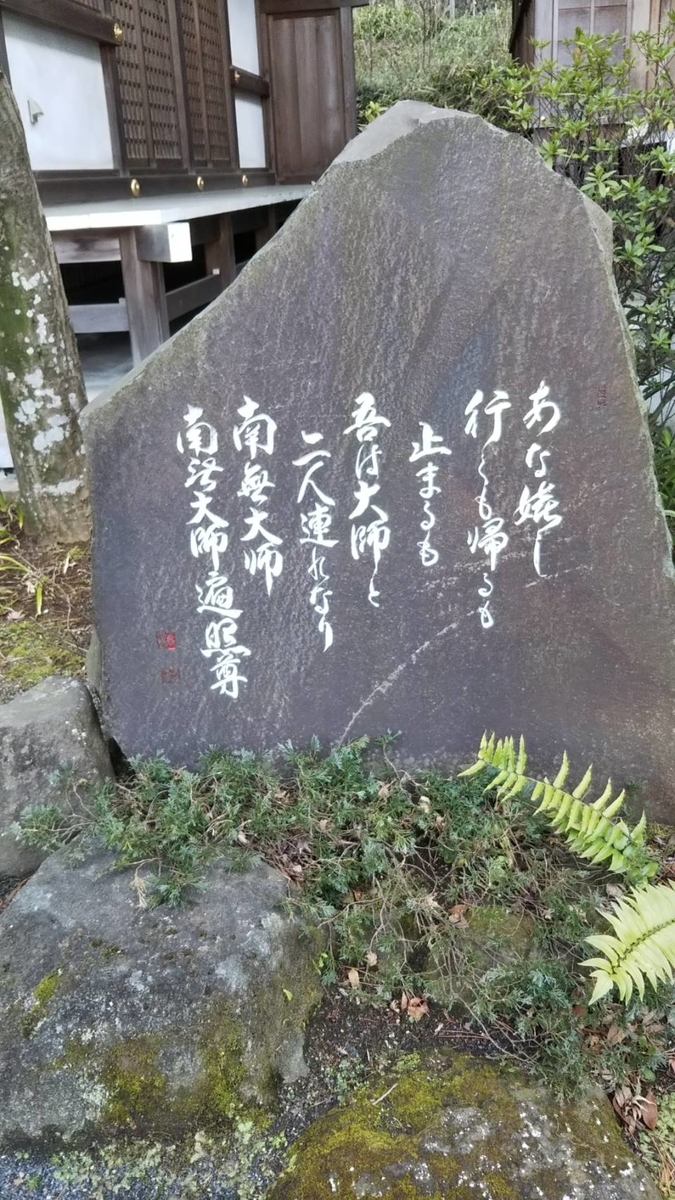 あな嬉し
行くも帰るも
止まるも
吾は大師と
二人連れなり
南無大师
南無大師遍照尊